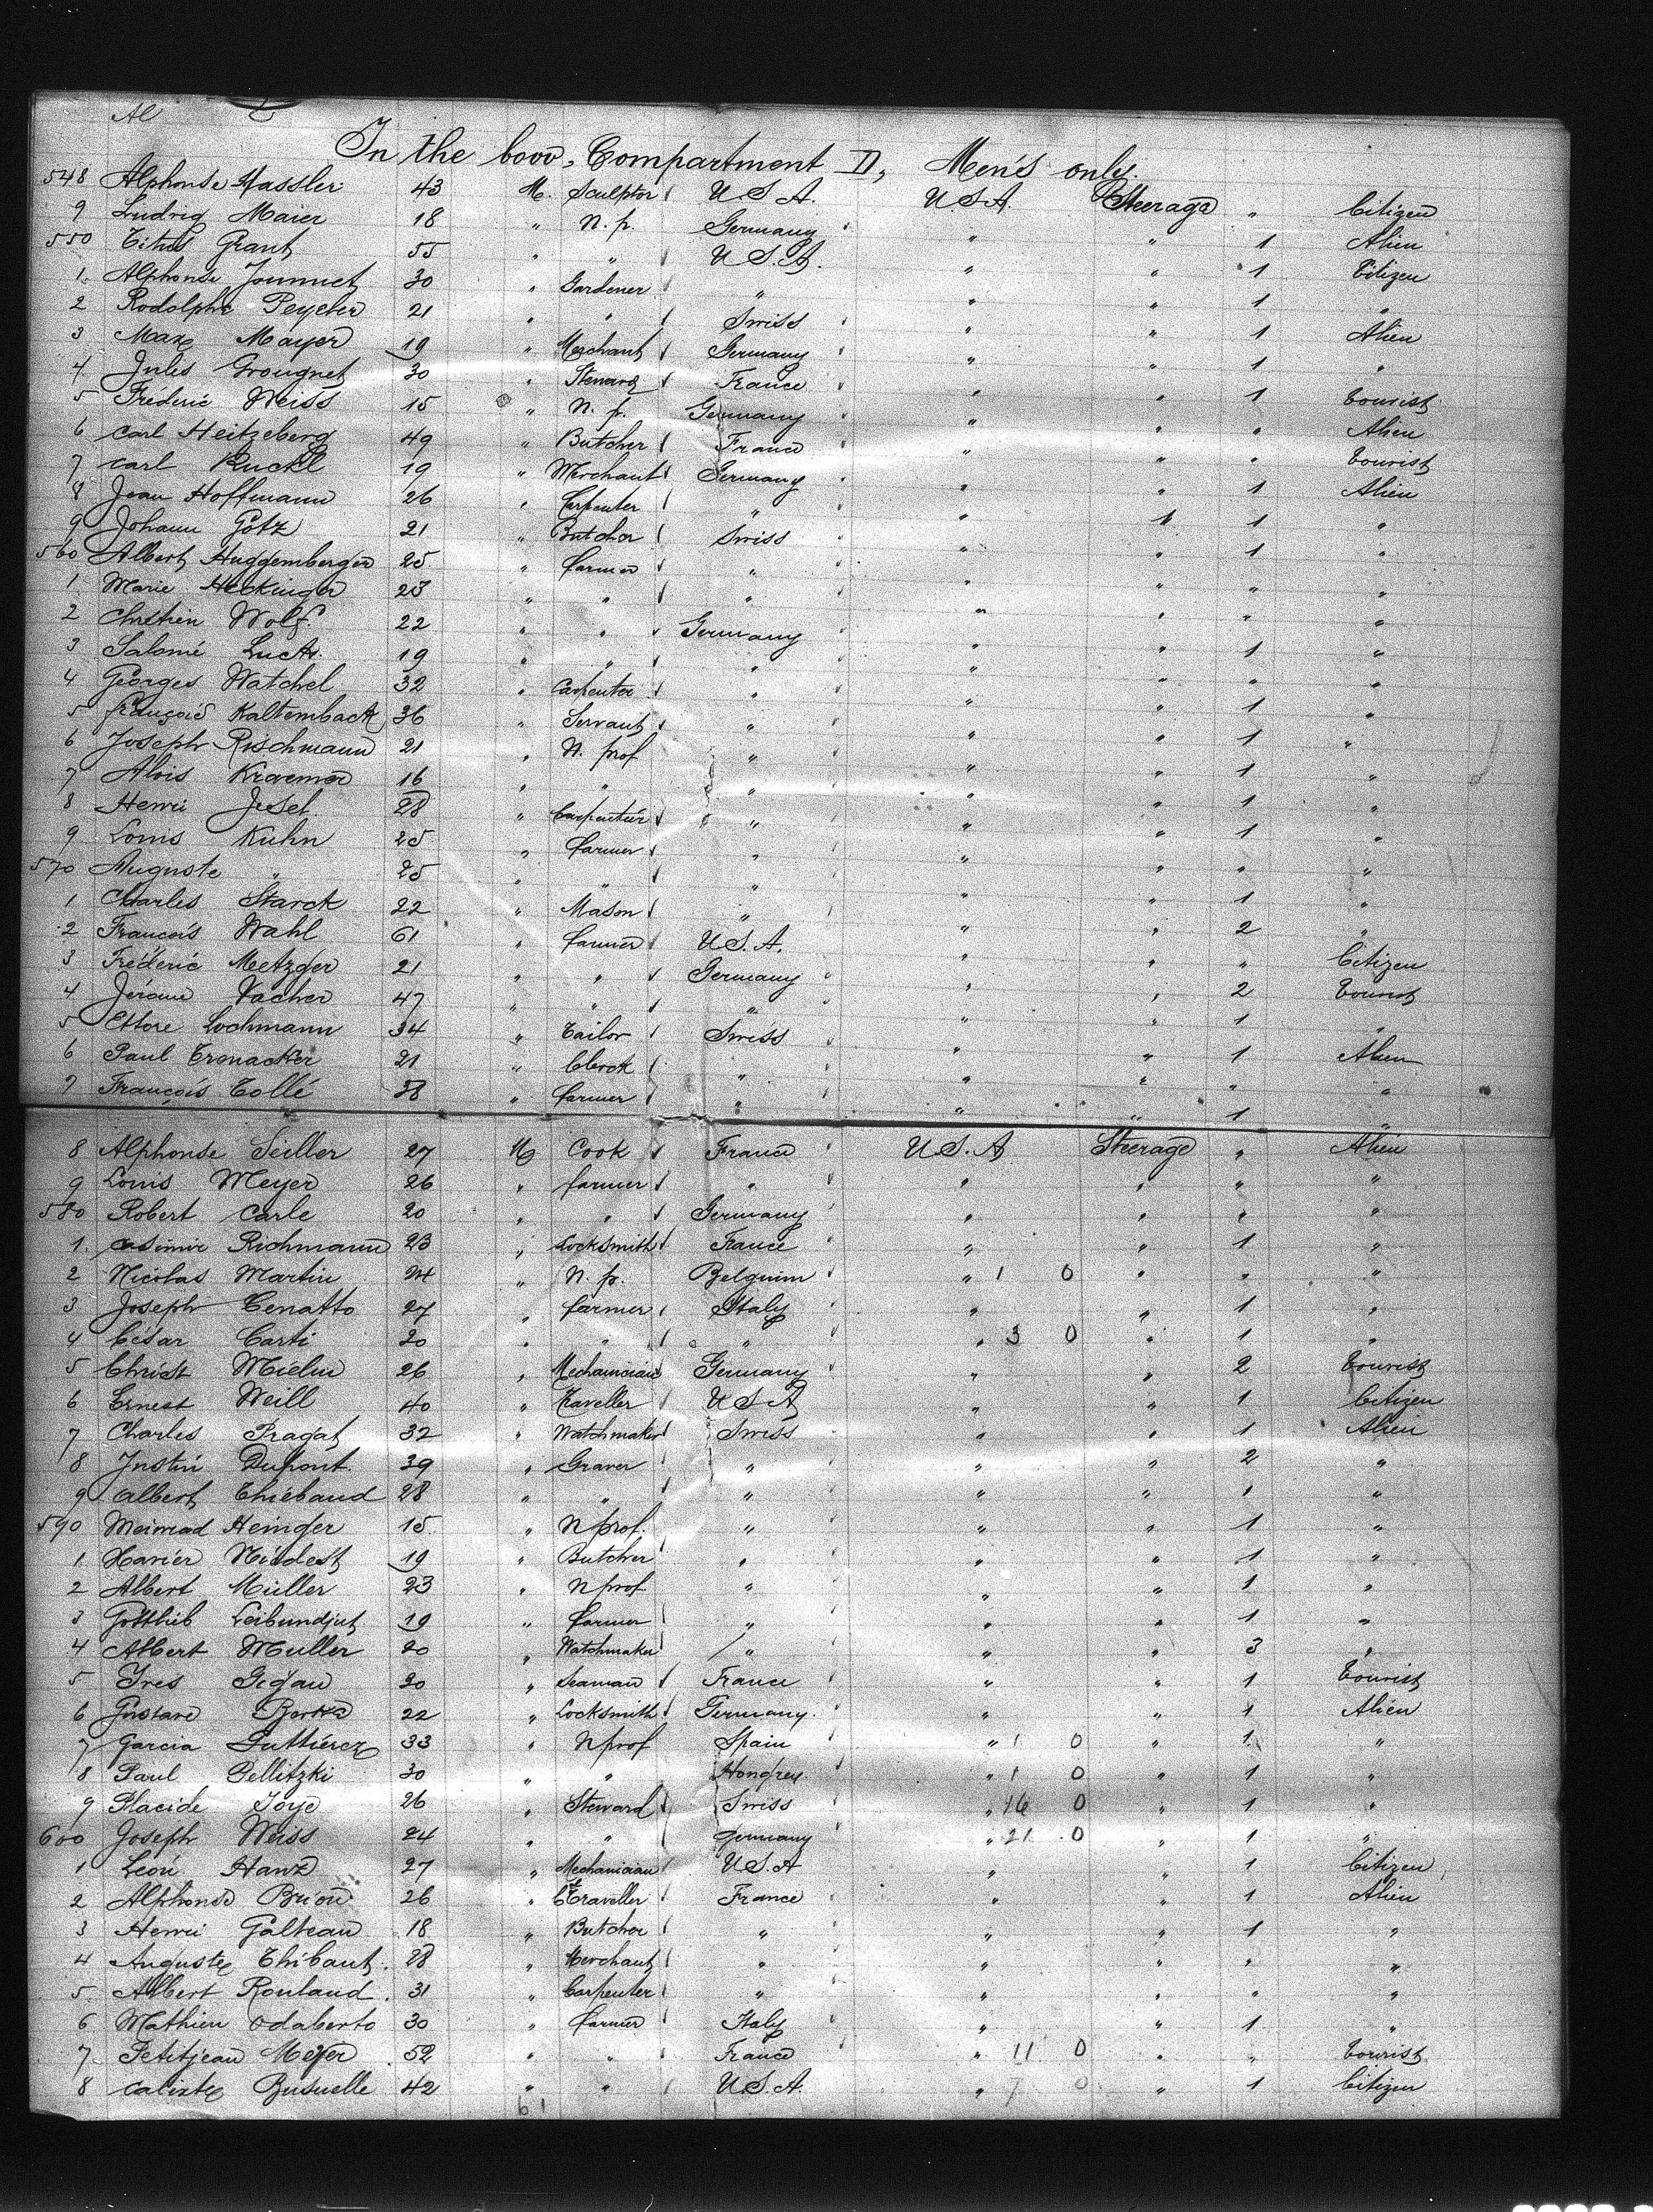 Al
In the bow, Compartment II, Men's only.
548 Alphonse Hassler 43 M. Sculptor U.S.A. U.S.A. Steerage " Citizen
9 Ludvig Maier 18 " N. p. Germany " " 1 Alien
550 Titus Grant 55 " " U.S.A. " " 1 Citizen
1. Alphonse 30 " Gardener " " " 1 "
2 Rodolphe 21 " " Swiss " " 1 Alien
3 Max Mayer 19 " Merchant Germany " " 1 "
4 Jules Grougnet 30 " Steward France " " 1 tourist
5 Fréderic Weiss 15 " N. p. Germany " " " Alien
6 Carl Heitzeberg 49 " Butcher France " " " tourist
7 Carl Ruckl 19 " Merchant Germany " " 1 Alien
8 Jean Hoffmann 26 " Carpenter " " " 1 "
9 Johann Götz 21 " Butcher Swiss " " 1 "
560 Albert Huggemberger 25 " farmer " " " " "
1 Marie 23 " " " " " " "
2 Chrétien Wolf. 22 " " Germany " " 1 "
3 Salomé 19 " " " " " " "
4 Georges Watchel 32 " Carpenter " " " 1 "
5 François Kaltemback 36 " Servant " " " 1 "
6 Joseph Rischmann 21 " N. prof " " " 1 "
7 Alois Kraemer 16 " " " " " 1 "
8 Henri Jesel. 28 " Carpentier " " " 1 "
9 Louis Kuhn 25 " farmer " " " " "
570 Auguste " 25 " " " " " 1 "
1 Charles Starck 22 " Mason " " " 2 "
2 François Wahl 61 " farmer U.S.A. " " " Citizen
3 Fréderic Metzger 21 " " Germany " " 2 tourist
4 Jérome Vacher 47 " " " " " 1 "
5 Ettore Lochmann 34 " Tailor Swiss " " 1 Alien
6 Paul 21 " Clerck " " " " "
7 François Tollé 38 " farmer " " " 1 "
8 Alphonse Seiller 27 M Cook France U.S.A Steerage " Alien
9 Louis Meyer 26 " farmer " " " " "
580 Robert Carle 20 " " Germany " " " "
1. Casimir Richmann 23 " Locksmith France " " 1 "
2 Nicolas Martin 24 " N. p. Belguim " 1 0 " " "
3 Joseph Cenatto 27 " farmer Italy " " 1 "
4 César Carti 20 " " " " 3 0 " 1 "
5 Christ Mielin 26 " Mechanician Germany " " 2 tourist
6 Ernest Weill 40 " Traveller U.S.A " " 1 Citizen
7 Charles Pragat 32 " Watchmaker Swiss " " 1 Alien
8 Justin Dupont. 39 " Graver " " " 2 "
9 Albert Thiébaud 28 " " " " " 1 "
590 Meinrad Heinger 15. " N prof. " " " 1 "
1 Xavier 19 " Butcher " " " 1 "
2 Albert Müller 23 " N prof " " " 1 "
3 Gottlieb Leibundjut 19 " farmer " " " 1 "
4 Albert Muller 20 " Watchmaker " " " 3 "
5 Yves 20 " Seaman France " " 1 tourist
6 Gustave 22 " Locksmith Germany. " " 1 Alien
7 Garcia Guttierez 33 " N prof Spain " 1 0 " 1. "
8 Paul Pellitzki 30 " " Hongrey. " 1 0 " 1 "
9 Placide Joye 26 " Steward Swiss " 16 0 " 1 "
600 Joseph Weiss 24 " " Germany " 21 0 " 1 "
1 Léon Hanz 27 " Mechanician U.S.A " " 1 Citizen
2 Alphonse Brion 26 " Traveller France " " 1 Alien
3 Henri Galteau 18 " Butcher " " " 1 "
4 Auguste Thibaut. 28 " Merchant " " " " "
5. Albert Rouland. 31 " Carpenter " " " " "
6 Mathieu Odaberto 30 " farmer Italy " " 1 "
7 Petitjean Meyer 52 " " France " 11 0 " " tourist
8 Calixte Busuelle 42 " " U.S.A. " 7 0 " 1 Citizen
61